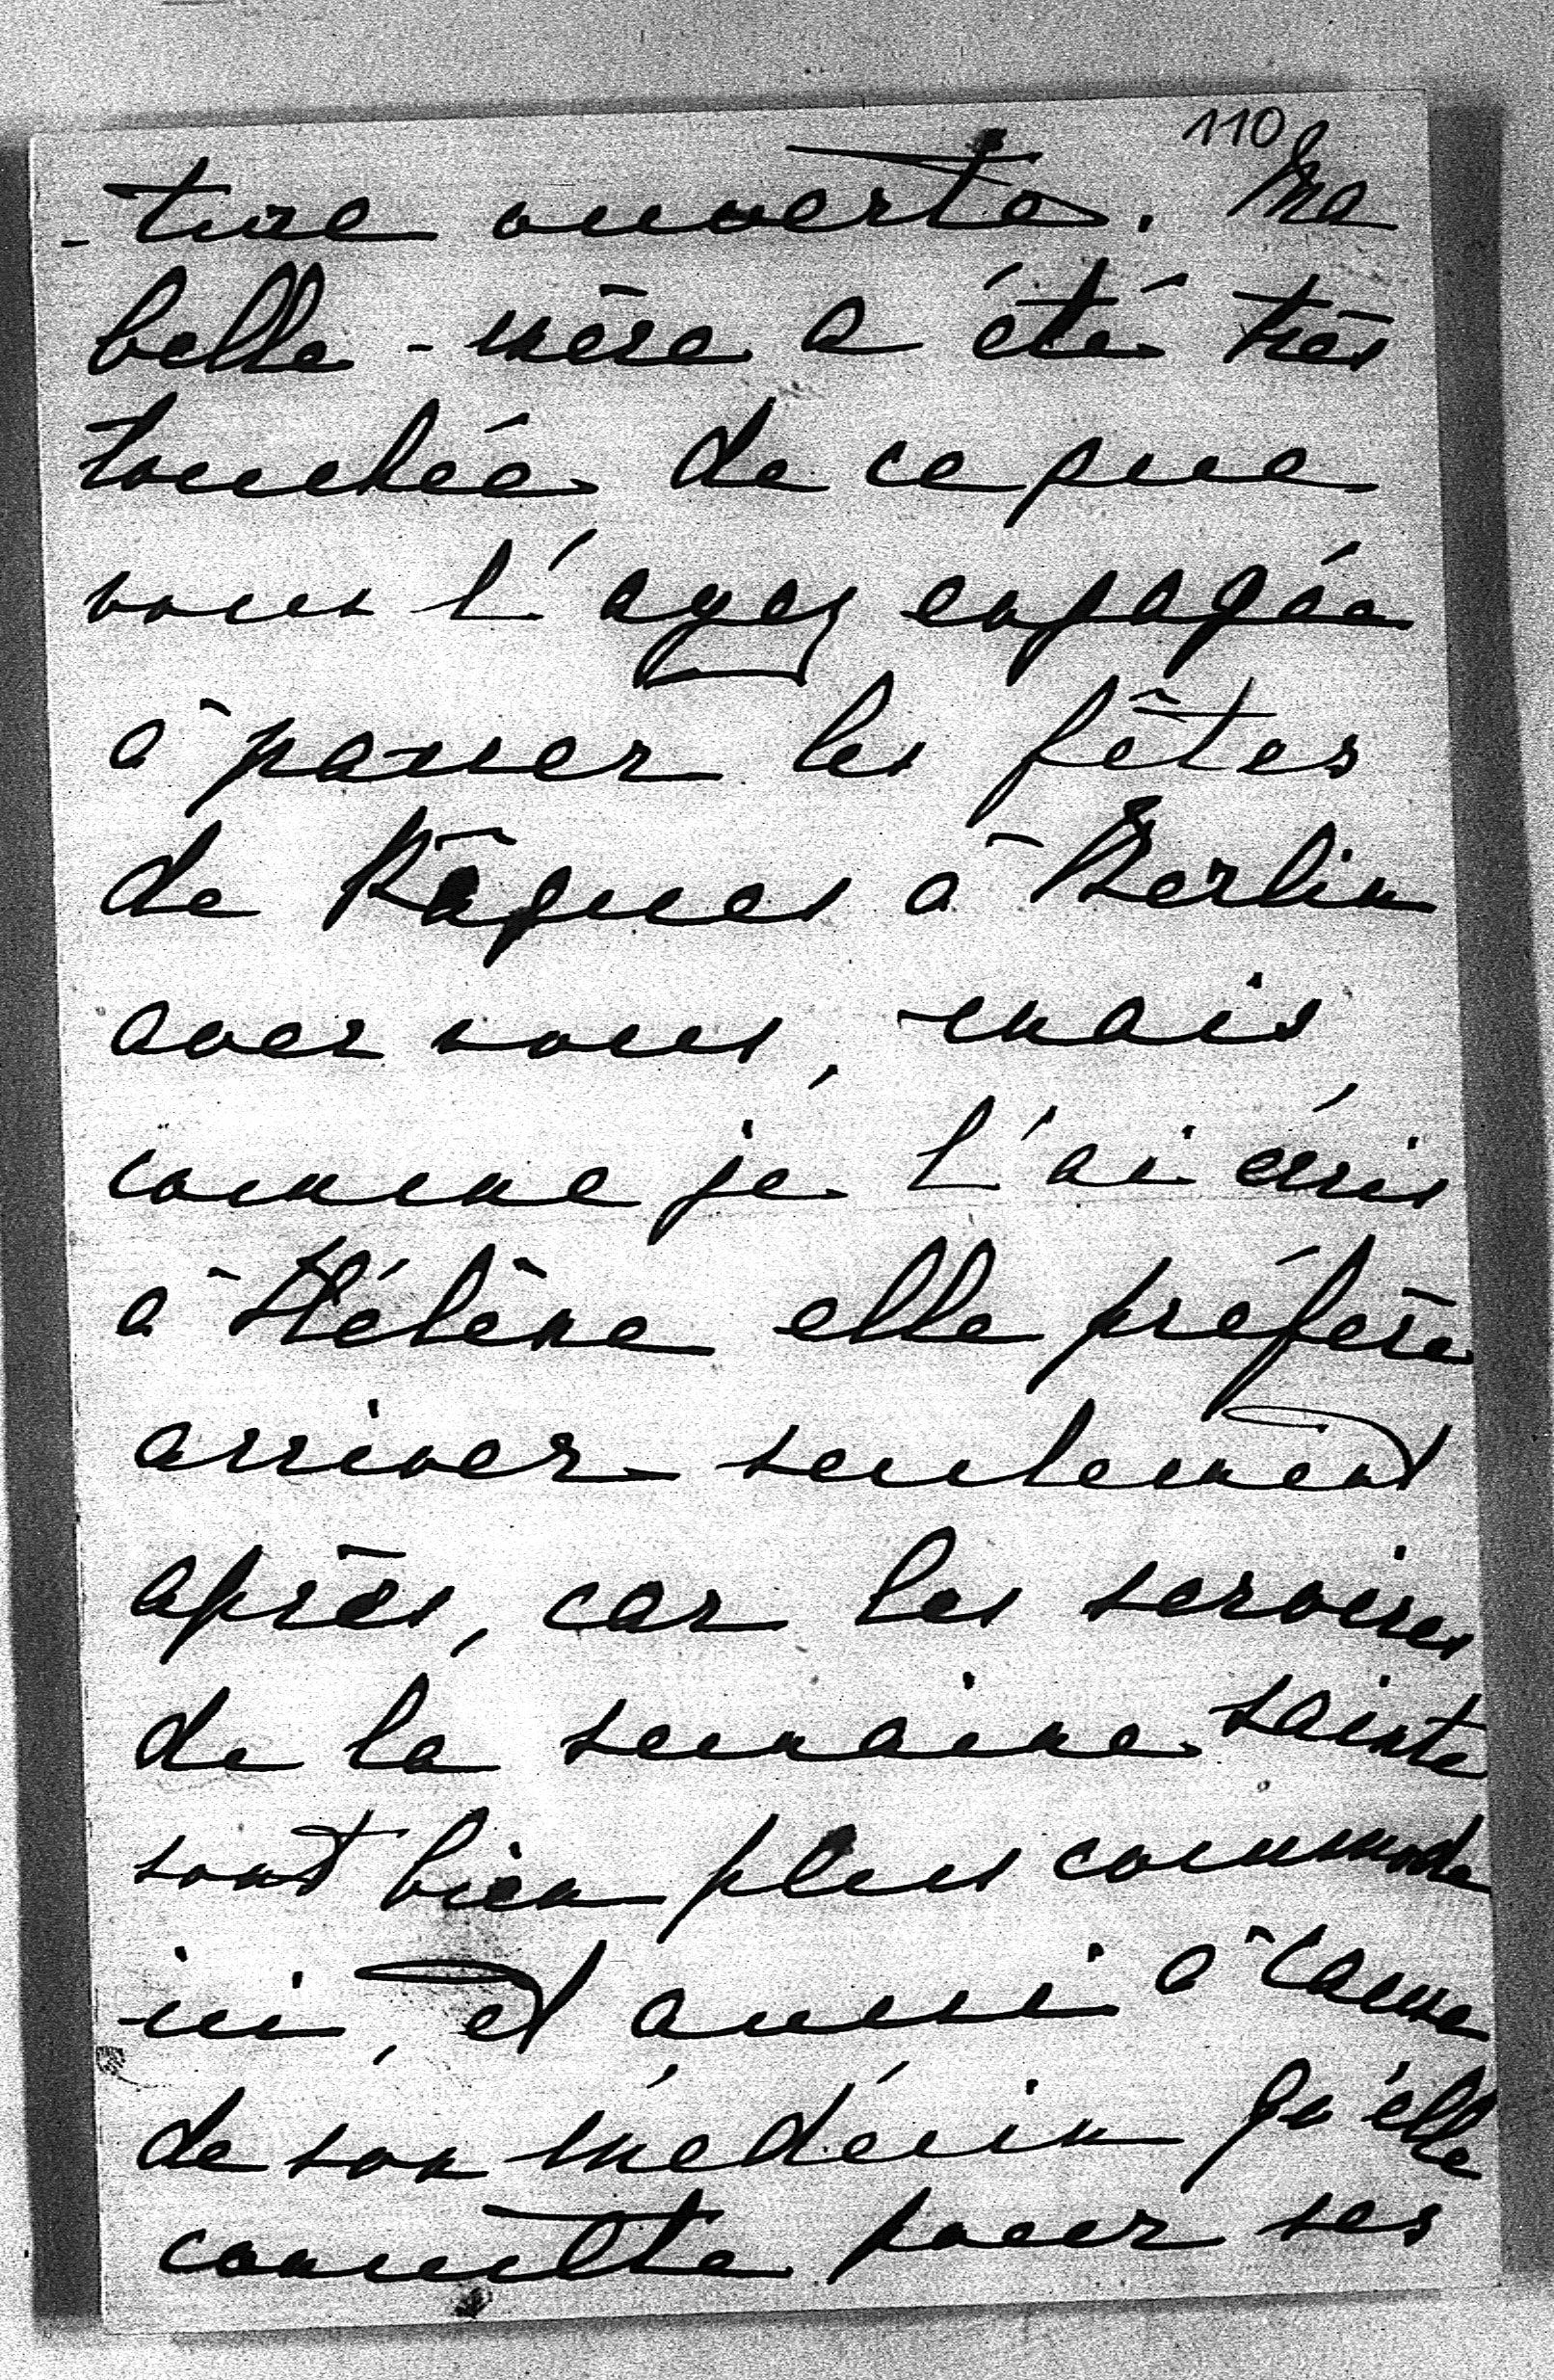 110
-ture ouverte. Ma
belle-mère a été très
touchée de ce que
vous l'ayez engagée
à passer les fêtes
de Pâques à Berlin
avec vous, mais
comme je l'ai écris
à Hélène elle préfère
arriver seulement
après, car les services
de la semaine sainte
sont bien plus commode
ici, et aussi à cause
de son médecin qu'elle
consulte pour ses